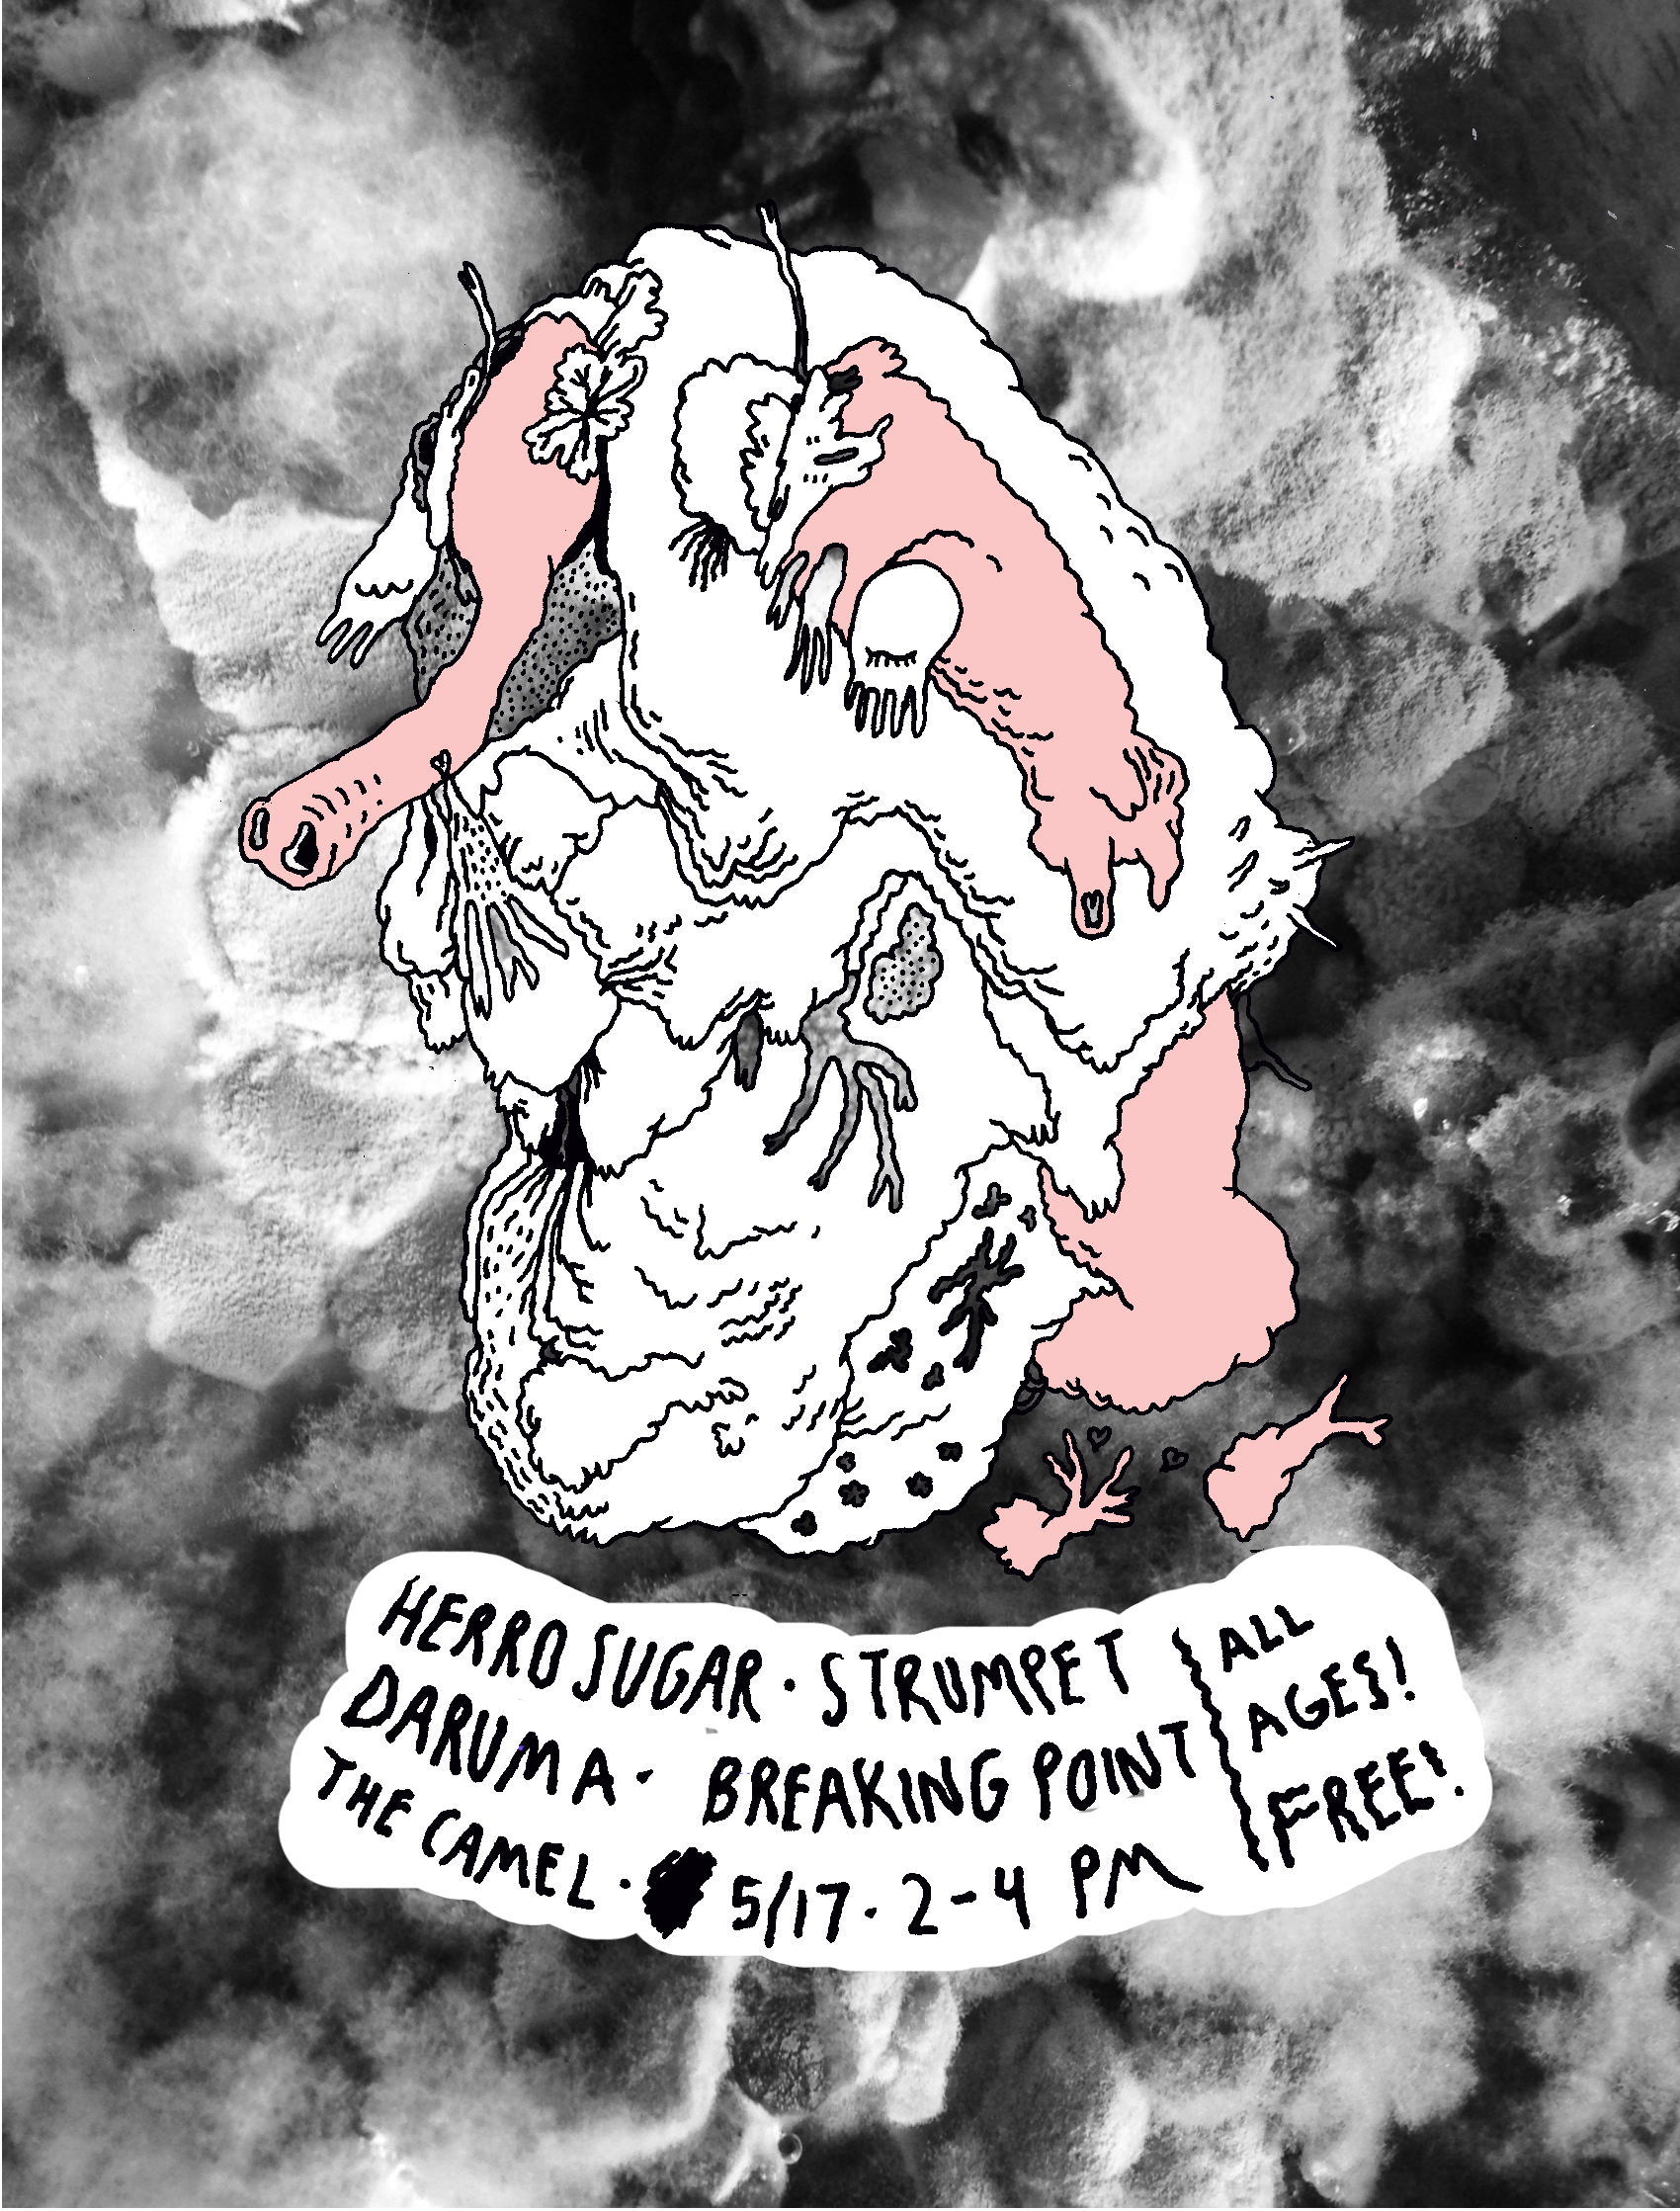 HERRO SUGAR · STRUMPET
DARUMA · BREAKING POINT
THE CAMEL · 5/17 · 2-4 PM
ALL
AGES!
FREE!